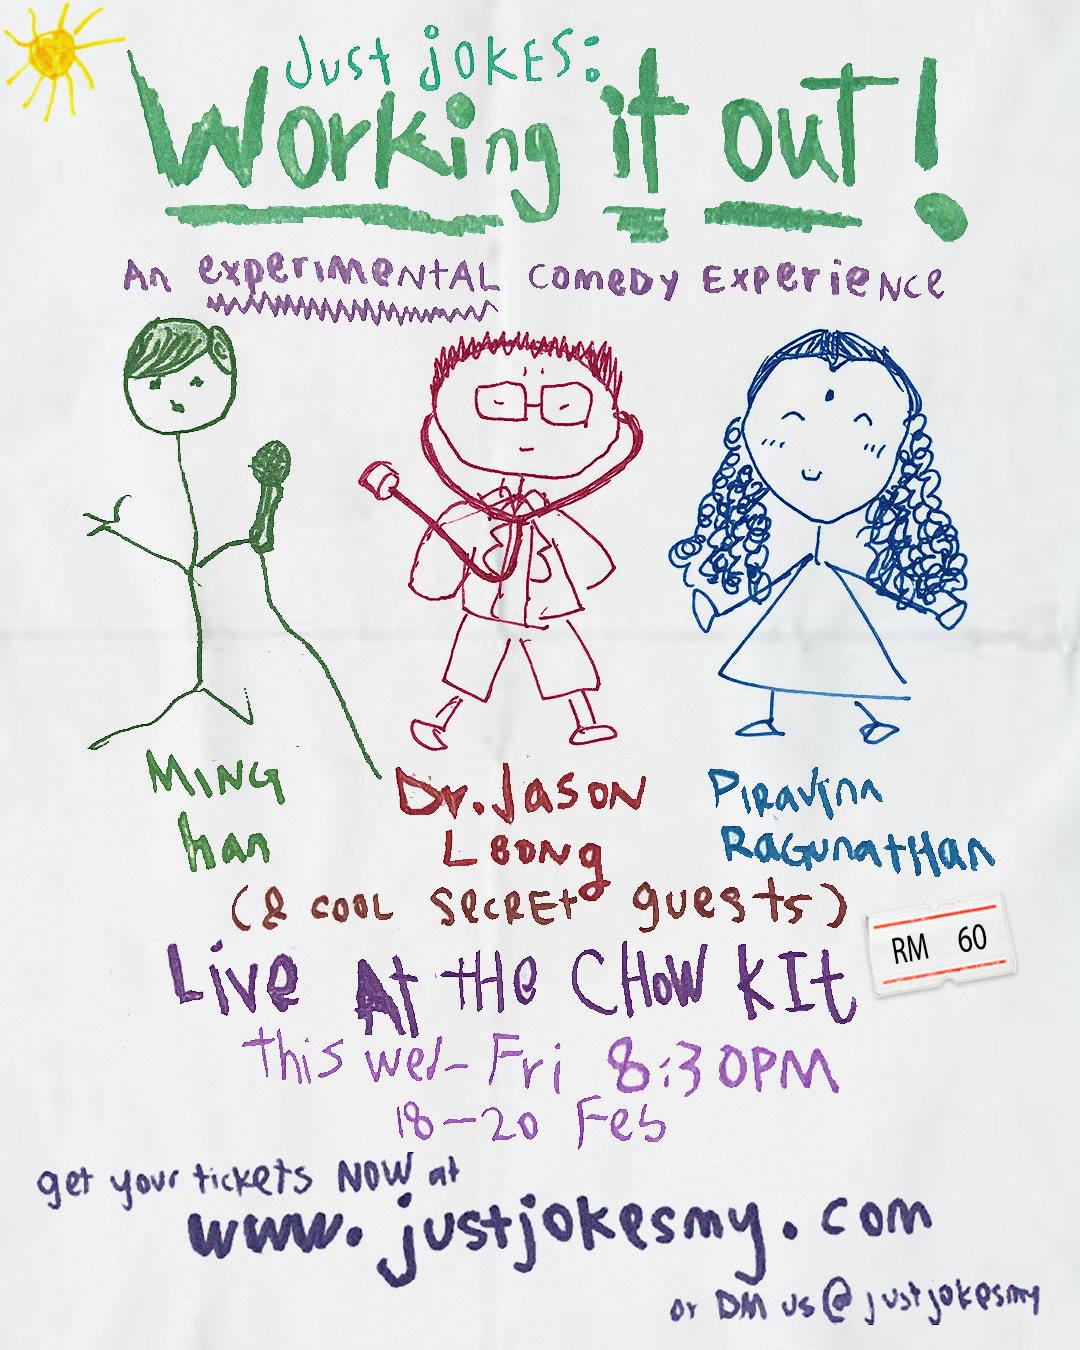 Just jOKES:
Working it out!
An experimental comedy Experience
MING han
Dr. Jason Leong
Piravina Ragunathan
(& cool secret guests)
RM 60
Live At the CHOW KIt
this wed- Fri 8:30PM
18-20 Feb
get your tickets NOW at
www.justjokesmy.com
or DM us @justjokesmy